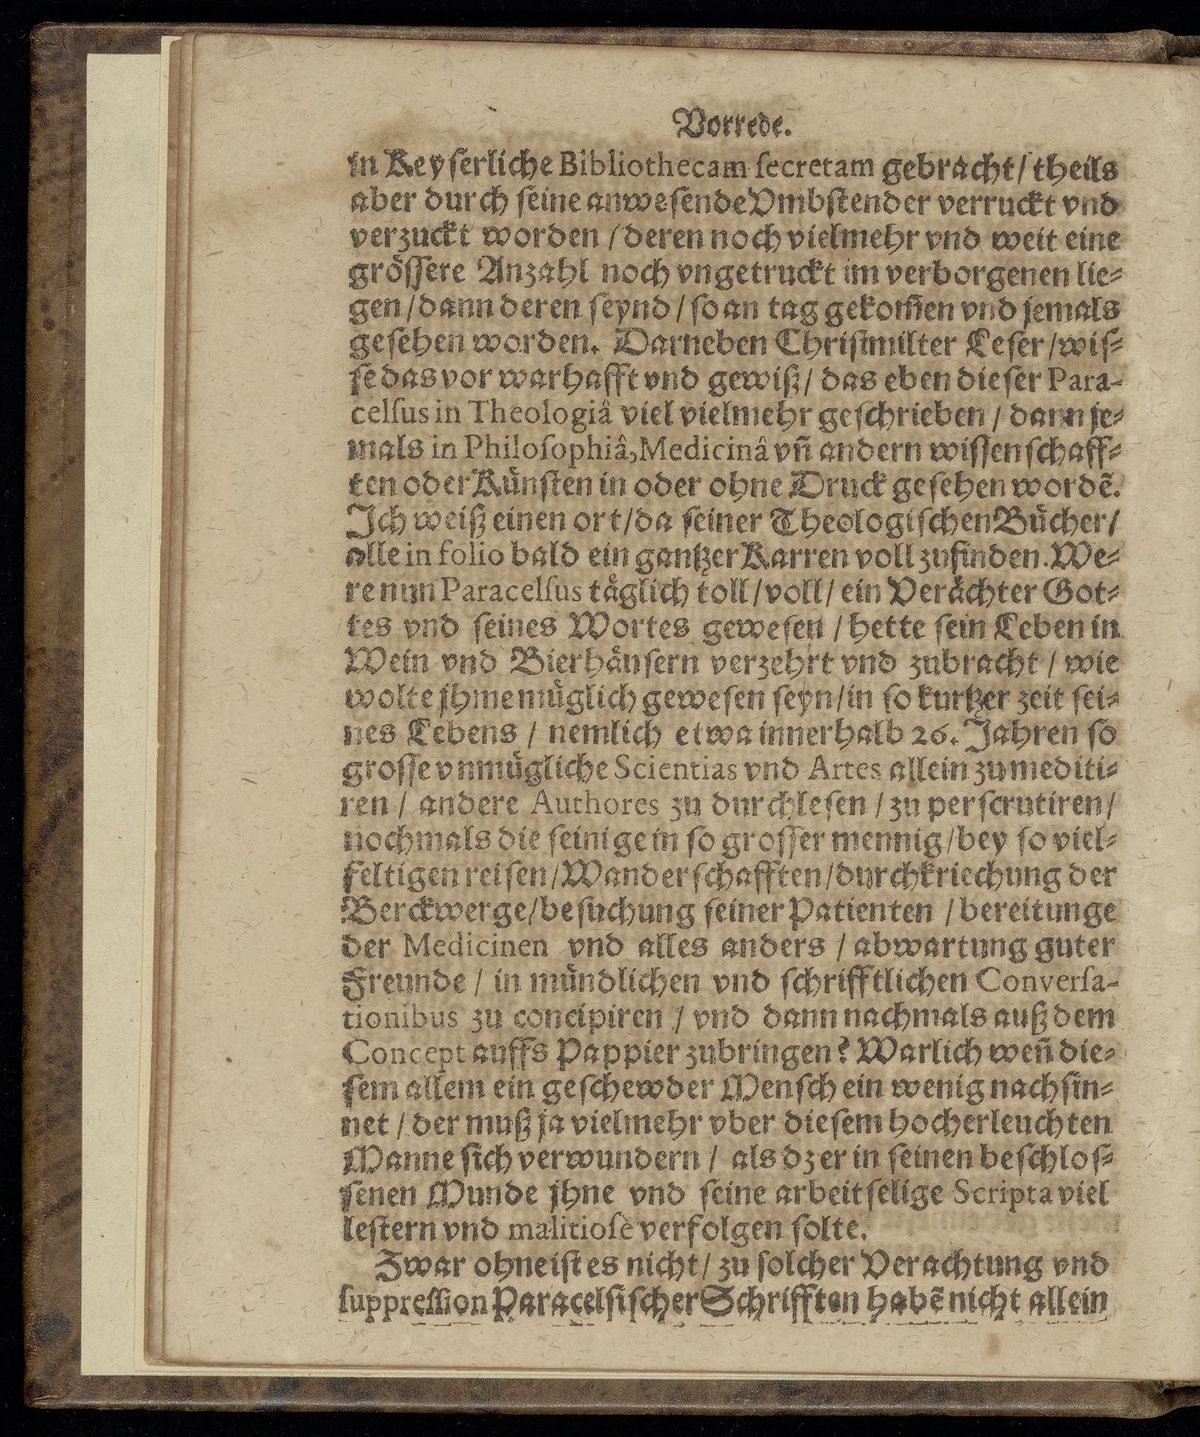 Vorrede.
in Keyserliche Bibliothecam secretam gebracht/ theils
aber durch seine anwesende Vmbstender verruckt vnd
verzuckt worden / deren noch vielmehr vnd weit eine
grössere Anzahl noch vngetruckt im verborgenen lie-
gen/ dann deren seynd / so an tag gekom̃en vnd jemals
gesehen worden. Darneben Christmilter Leser/ wis-
se das vor warhafft vnd gewiß/ das eben dieser Para-
celsus in Theologiâ viel vielmehr geschrieben / dann je-
mals in Philosophiâ, Medicinâ vñ andern wissenschaff-
ten oder Künsten in oder ohne Druck gesehen wordẽ.
Ich weiß einen ort/ da seiner Theologischen Bücher/
alle in folio bald ein gantzer Karren voll zufinden. We-
re nun Paracelsus täglich toll/ voll/ ein Verächter Got-
tes vnd seines Wortes gewesen / hette sein Leben in
Wein vnd Bierhäusern verzehrt vnd zubracht / wie
wolte jhme müglich gewesen seyn/ in so kurtzer zeit sei-
nes Lebens / nemlich etwa innerhalb 26. Jahren so
grosse vnmügliche Scientias vnd Artes allein zu mediti-
ren / andere Authores zu durchlesen / zu perscrutiren/
nochmals die seinige in so grosser mennig/ bey so viel-
feltigen reisen/ Wanderschafften/ durchkriechung der
Berckwerge/ besuchung seiner Patienten / bereitunge
der Medicinen vnd alles anders / abwartung guter
Freunde / in mündlichen vnd schrifftlichen Conversa-
tionibus zu concipiren / vnd dann nachmals auß dem
Concept auffs Pappier zubringen? Warlich weñ die-
sem allem ein geschewder Mensch ein wenig nachsin-
net / der muß ja vielmehr vber diesem hocherleuchten
Manne sich verwundern / als dz er in seinen beschlos-
senen Munde jhne vnd seine arbeitselige Scripta viel
lestern vnd malitiosè verfolgen solte.
Zwar ohne ist es nicht/ zu solcher Verachtung vnd
suppression Paracelsischer Schrifften habẽ nicht allein